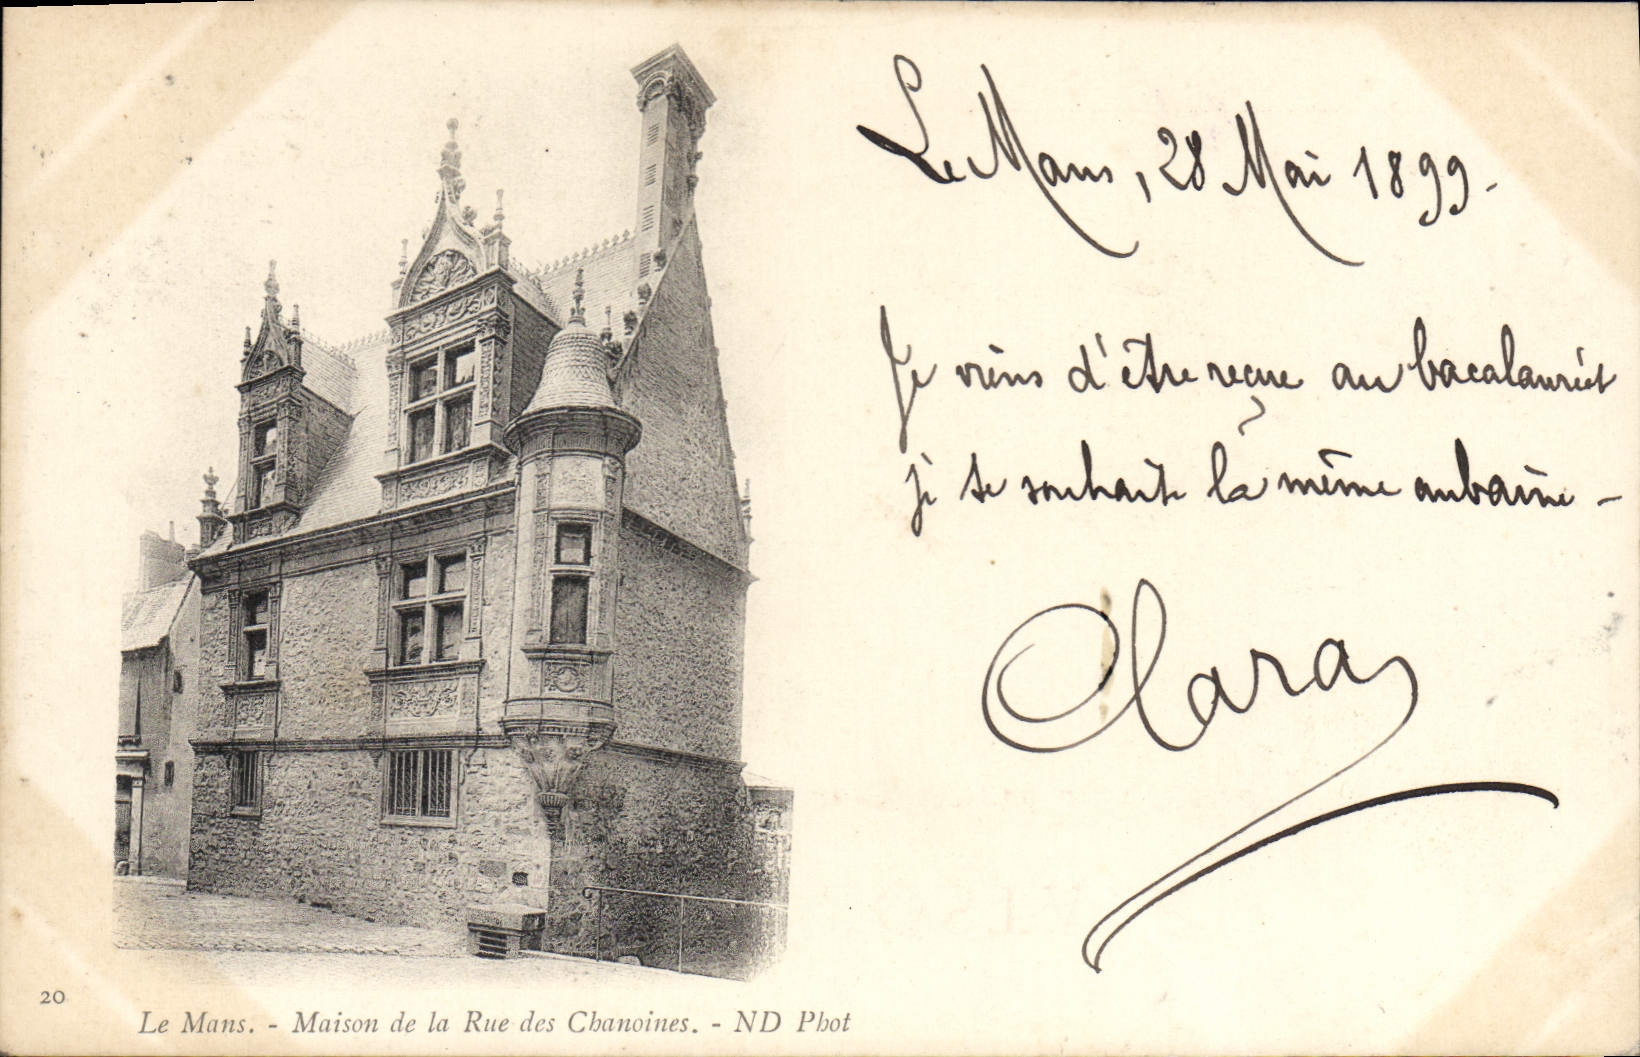 Le Mans, 28 Mai 1899.
Je viens d'être reçue au bacalauréat
je te souhaite la même aubaine -
Clara
20
Le Mans. - Maison de la Rue des Chanoines. - ND Phot